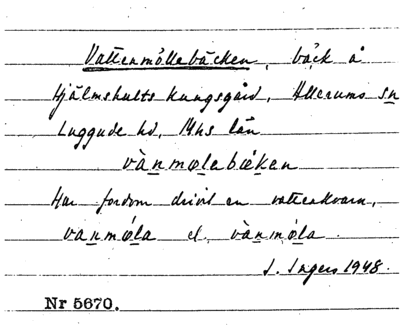 Vattenmöllebäcken, bäck å
Hjälmshults kungsgård, Allerums sn
Luggude hd, Mhs län
vànmølabɛken
Har fordom drivit en vattenkvarn,
vanmǿla el. vànmǿla.
I. Ingers 1948.
Nr 5670.